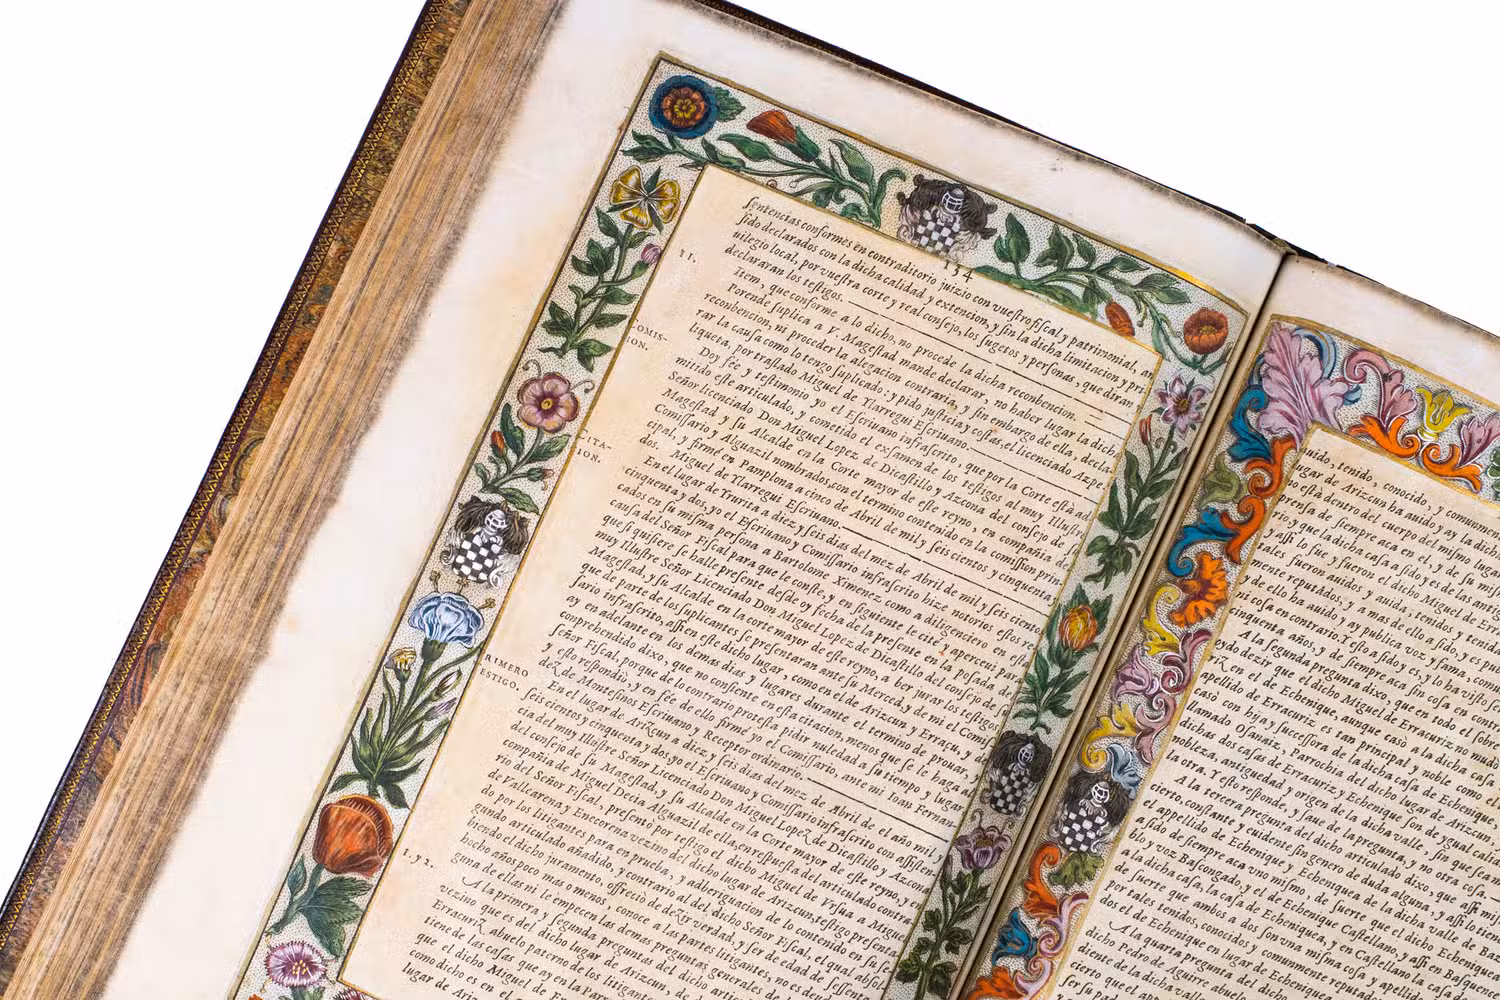 134
sentencias conformes en contraditorio juizio con vuestro fiscal y patrimonial, an
sido declarados con la dicha calidad y extencion, y sin la dicha limitacion, y pri
uilegio local, por vuestra corte y real consejo, los sugetos y personas, que diran
declararan los testigos.
11.
Item, que conforme a lo dicho, no procede la dicha reconbencion.
Porende suplica a V. Magestad mande declarar, no haber lugar la dicha
reconbencion, ni proceder la alegacion contraria, y sin embargo de ella, decla
rar la causa como lo tengo suplicado: y pido justicia y costas, el licenciado Azpe
liqueta, por traslado Miguel de Ylarregui Escriuano.
COMIS-
ION.
Doy fee y testimonio yo el Escriuano infrascrito, que por la Corte està ad
mitido este articulado, y cometido el examen de los testigos al muy Illust
Señor licenciado Don Miguel Lopez de Dicastillo y Azcona del consejo de su
Magestad y su Alcalde en la Corte mayor de este reyno, en compañia de
Comissario y Alguazil nombrados, con el termino contenido en la comission prin-
cipal, y firmé en Pamplona a cinco de Abril de mil y seis cientos y cinquenta
dos. Miguel de Ylarregui Escriuano.
CITA-
ION.
En el lugar de Yrurita a diez y seis dias del mes de Abril de mil y seis ciento
cinquenta y dos, yo el Escriuano y Comissario infrascrito hize notorios estos
cados en su misma persona a Bartolome Ximenez como a diligenciero en esta
causa del Señor Fiscal para que le conste, y en siguiente le cité, y aperceui Par
que si quisiere se halle presente desde oy fecha de la presente en la posada de
muy Illustre Señor Licenciado Don Miguel Lopez de Dicastillo del consejo de
Magestad, y su Alcalde en la corte mayor de este reyno, a ber jurar los testigos
que de parte de los suplicantes se presentaran ante su Merced, y de mi el Comis
sario infrascrito, assi en este dicho lugar, como en el de Arizcun, y Erraçu, y don
ay en adelante en los demas dias y lugares durante el termino de prouar,
conprehendido dixo, que no consiente en esta citacion, menos que se le haga a
señor Fiscal, porque de lo contrario protesta pidir nuledad a su tiempo y lugar
y esto respondiò, y en fée de ello firmé yo el Comissario, ante mi Ioan Fernan
dez de Montesinos Escriuano y Receptor ordinario.
RIMERO
ESTIGO,
En el lugar de Arizcun a diez y seis dias del mes de Abril de el año mil, y
seis cientos y cinquenta y dos, yo el Escriuano y Comissario infrascrito con assisten
cia del muy Illustre Señor Licenciado Don Miguel Lopez de Dicastillo y Azcona
del consejo de su Magestad, y su Alcalde en la Corte mayor de este reyno, y en
compañia de Miguel Decia Alguazil de ella, en respuesta del articulado contra
rio del Señor Fiscal, presentò por testigo el dicho Miguel de Vrsua a Miguel
de Vallcarena y Enecorena vezino del dicho lugar de Arizcun, testigo presenta
do por los litigantes para en prueba, y adberiguacion de lo contenido en su se
gundo articulado añadido, y contrario al del dicho Señor Fiscal, el qual absol
biendo el dicho juramento, offreciò de dezir verdad, y ser de edad de sessenta
ocho años poco mas o menos, conoce a las partes litigantes, no es deudo
guna de ellas ni le empecen las demas preguntas generales
1. y 2.
A la primera, y segunda preguntas del dicho articulado
vezino que es del dicho lugar de Arizcun,
tiene de las casas que ay en la Parr
Erraçuriz, abuelo paterno de los litigantes,
que el dicho Miguel de Er
como dicho es en el
lugar de Ariz
auido, tenido, conocido, y comunm
lugar de Arizcun ha auido y ay la dicha
no està dentro del cuerpo del mismo lugar
prensa de siempre aca en el, y de su bas
rio y que la dicha casa a sido y es de las antig
assi lo fue y fueron el dicho Miguel de Err
tales fueron auidos y auida; tenidos y tenida
mente reputados, y a mas de ello a sido, y es pu
de ello ha auido, y ay publica voz, y fama, comu
ni cosa en contrario. Y esto a sido y es, y lo ha visto se
cinquenta años, y de siempre aca sin cosa en contra
A la segunda pregunta dixo, que en todo el sobre
oydo dezir que el dicho Miguel de Erraçuriz no mudò
riz, en el de Echenique, aunque casò a la dicha casa
apellido de Erraçuriz es tan principal, y noble como el
casò con hija y successora de la dicha casa de Echenique
llamado Osanaiz, Parrochia del dicho lugar de Arizcun
dichas dos casas de Erraçuriz y Echenique son de ygual calidad
nobleza, antiguedad y origen de la dicha valle, sin que sea m
la otra. Y esto responde, y saue de la pregunta, y no otra cosa
A la tercera pregunta del dicho articulado dixo, que assi mis
cierto, constante y cuidente sin genero de duda alguna, y assi lo tiene
el appellido de Echenique y Echeniquea de la dicha valle de Baz
a sido de siempre aca vno mismo, de suerte que el dicho apelli
blo y voz Bascongado, y el de Echenique Castellano, y assi en Basquence
a la dicha casa, la casa de Echenique, y en Castellano la casa de
de suerte que ambos a dos son vna misma cosa, y apelli
por tales tenidos, conocidos y comunmente reputa
dos el de Echenique en lugar de Echeni
A la quarta pregunta
dicho Pedro de Aguirre abuelo
diente de la dicha valle
cierto que el di
ser su pad